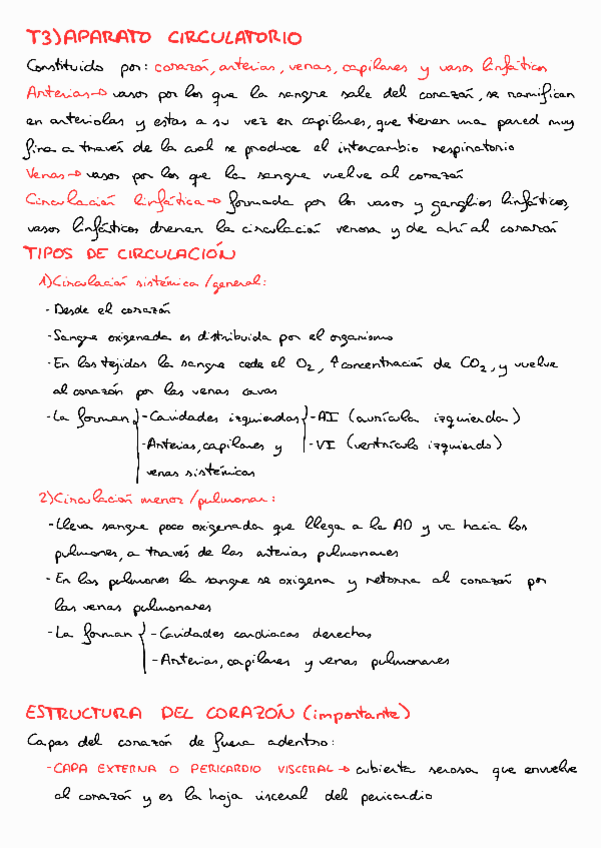 T3) APARATO CIRCULATORIO
Constituido por: corazón, arterias, venas, capilares y vasos linfáticos
Arterias→ vasos por los que la sangre sale del corazón, se ramifican
en arteriolas y estas a su vez en capilares, que tienen una pared muy
fina a través de la cual se produce el intercambio respiratorio
Venas→ vasos por los que la sangre vuelve al corazón
Circulación linfática→ formada por los vasos y ganglios linfáticos,
vasos linfáticos drenan la circulación venosa y de ahí al corazón
TIPOS DE CIRCULACIÓN
1) Circulación sistémica/general:
- Desde el corazón
- Sangre oxigenada es distribuida por el organismo
- En los tejidos la sangre cede el O₂, ↑concentración de CO₂, y vuelve
al corazón por las venas cavas
- La forman - Cavidades izquierdas - AI (aurícula izquierda)
- Arterias, capilares y - VI (ventrículo izquierdo)
venas sistémicas
2) Circulación menor/pulmonar:
- Lleva sangre poco oxigenada que llega a la AD y va hacia los
pulmones, a través de las arterias pulmonares
- En los pulmones la sangre se oxigena y retorna al corazón por
las venas pulmonares
- La forman - Cavidades cardiacas derechas
- Arterias, capilares y venas pulmonares
ESTRUCTURA DEL CORAZÓN (importante)
Capas del corazón de fuera adentro:
- CAPA EXTERNA O PERICARDIO VISCERAL→ cubierta serosa que envuelve
al corazón y es la hoja visceral del pericardio